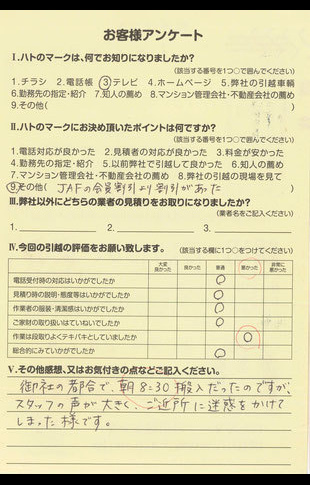 お客様アンケート
Ⅰ.ハトのマークは、何でお知りになりましたか?
(該当する番号を1つ○で囲んでください)
1.チラシ 2.電話帳 ③テレビ 4.ホームページ 5.弊社の引越車輌
6.勤務先の指定・紹介 7.知人の薦め 8.マンション管理会社・不動産会社の薦め
9.その他( )
Ⅱ.ハトのマークにお決め頂いたポイントは何ですか?
(該当する番号を1つ○で囲んでください)
1.電話対応が良かった 2.見積者の対応が良かった 3.料金が安かった
4.勤務先の指定・紹介 5.以前弊社で引越して良かった 6.知人の薦め
7.マンション管理会社・不動産会社の薦め 8.弊社の引越の現場を見て
⑨その他( JAFの会員割引より割引があった )
Ⅲ.弊社以外にどちらの業者の見積りをお取りになりましたか?
(業者名をご記入ください)
1. 2. 3.
Ⅳ.今回の引越の評価をお願い致します。 (該当する欄に1つ○をつけてください)
大変良かった 良かった 普通 悪かった 非常に悪かった
電話受付時の対応はいかがでしたか ○
見積り時の説明・態度等はいかがでしたか ○
作業者の服装・清潔感はいかがでしたか ○
ご家財の取り扱いはていねいでしたか ○
作業は段取りよくテキパキとしていましたか ○
総合的にみていかがでしたか ○
Ⅴ.その他感想、又はお気付きの点などご記入ください。
御社の都合で、朝8:30搬入だったのですが、
スタッフの声が大きく、ご近所に迷惑をかけて
しまった様です。